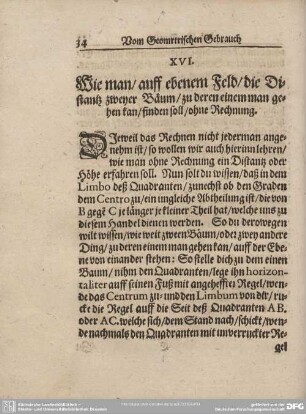 34 Vom Geometrischen Gebrauch
XVI.
Wie man/ auff ebenem Feld/ die Di-
stantz zweyer Bäum/ zu deren einem man ge-
hen kan/ finden soll/ ohne Rechnung.
DJeweil das Rechnen nicht jederman ange-
nehm ist/ so wollen wir auch hierinn lehren/
wie man ohne Rechnung ein Distantz oder
Höhe erfahren soll. Nun solt du wissen/ daß in dem
Limbo deß Quadranten/ zunechst ob den Graden
dem Centro zu/ ein ungleiche Abtheilung ist/ die von
B gegē C je länger je kleiner Theil hat/ welche uns zu
diesem Handel dienen werden. So du derowegen
wilt wissen/ wie weit zween Bäum/ oder zwey andere
Ding/ zu deren einem man gehen kan/ auff der Ebe-
ne von einander stehen: So stelle dich zu dem einen
Baum/ nihm den Quadranten/ lege ihn horizon-
taliter auff seinen Fuß mit angeheffter Regel/ wen-
de das Centrum zu- und den Limbum von dir/ ru-
cke die Regel auff die Seit deß Quadranten AB,
oder AC. welche sich/ dem Stand nach/ schickt/ wen-
de nachmals den Quadranten mit unverruckter Re-
gel